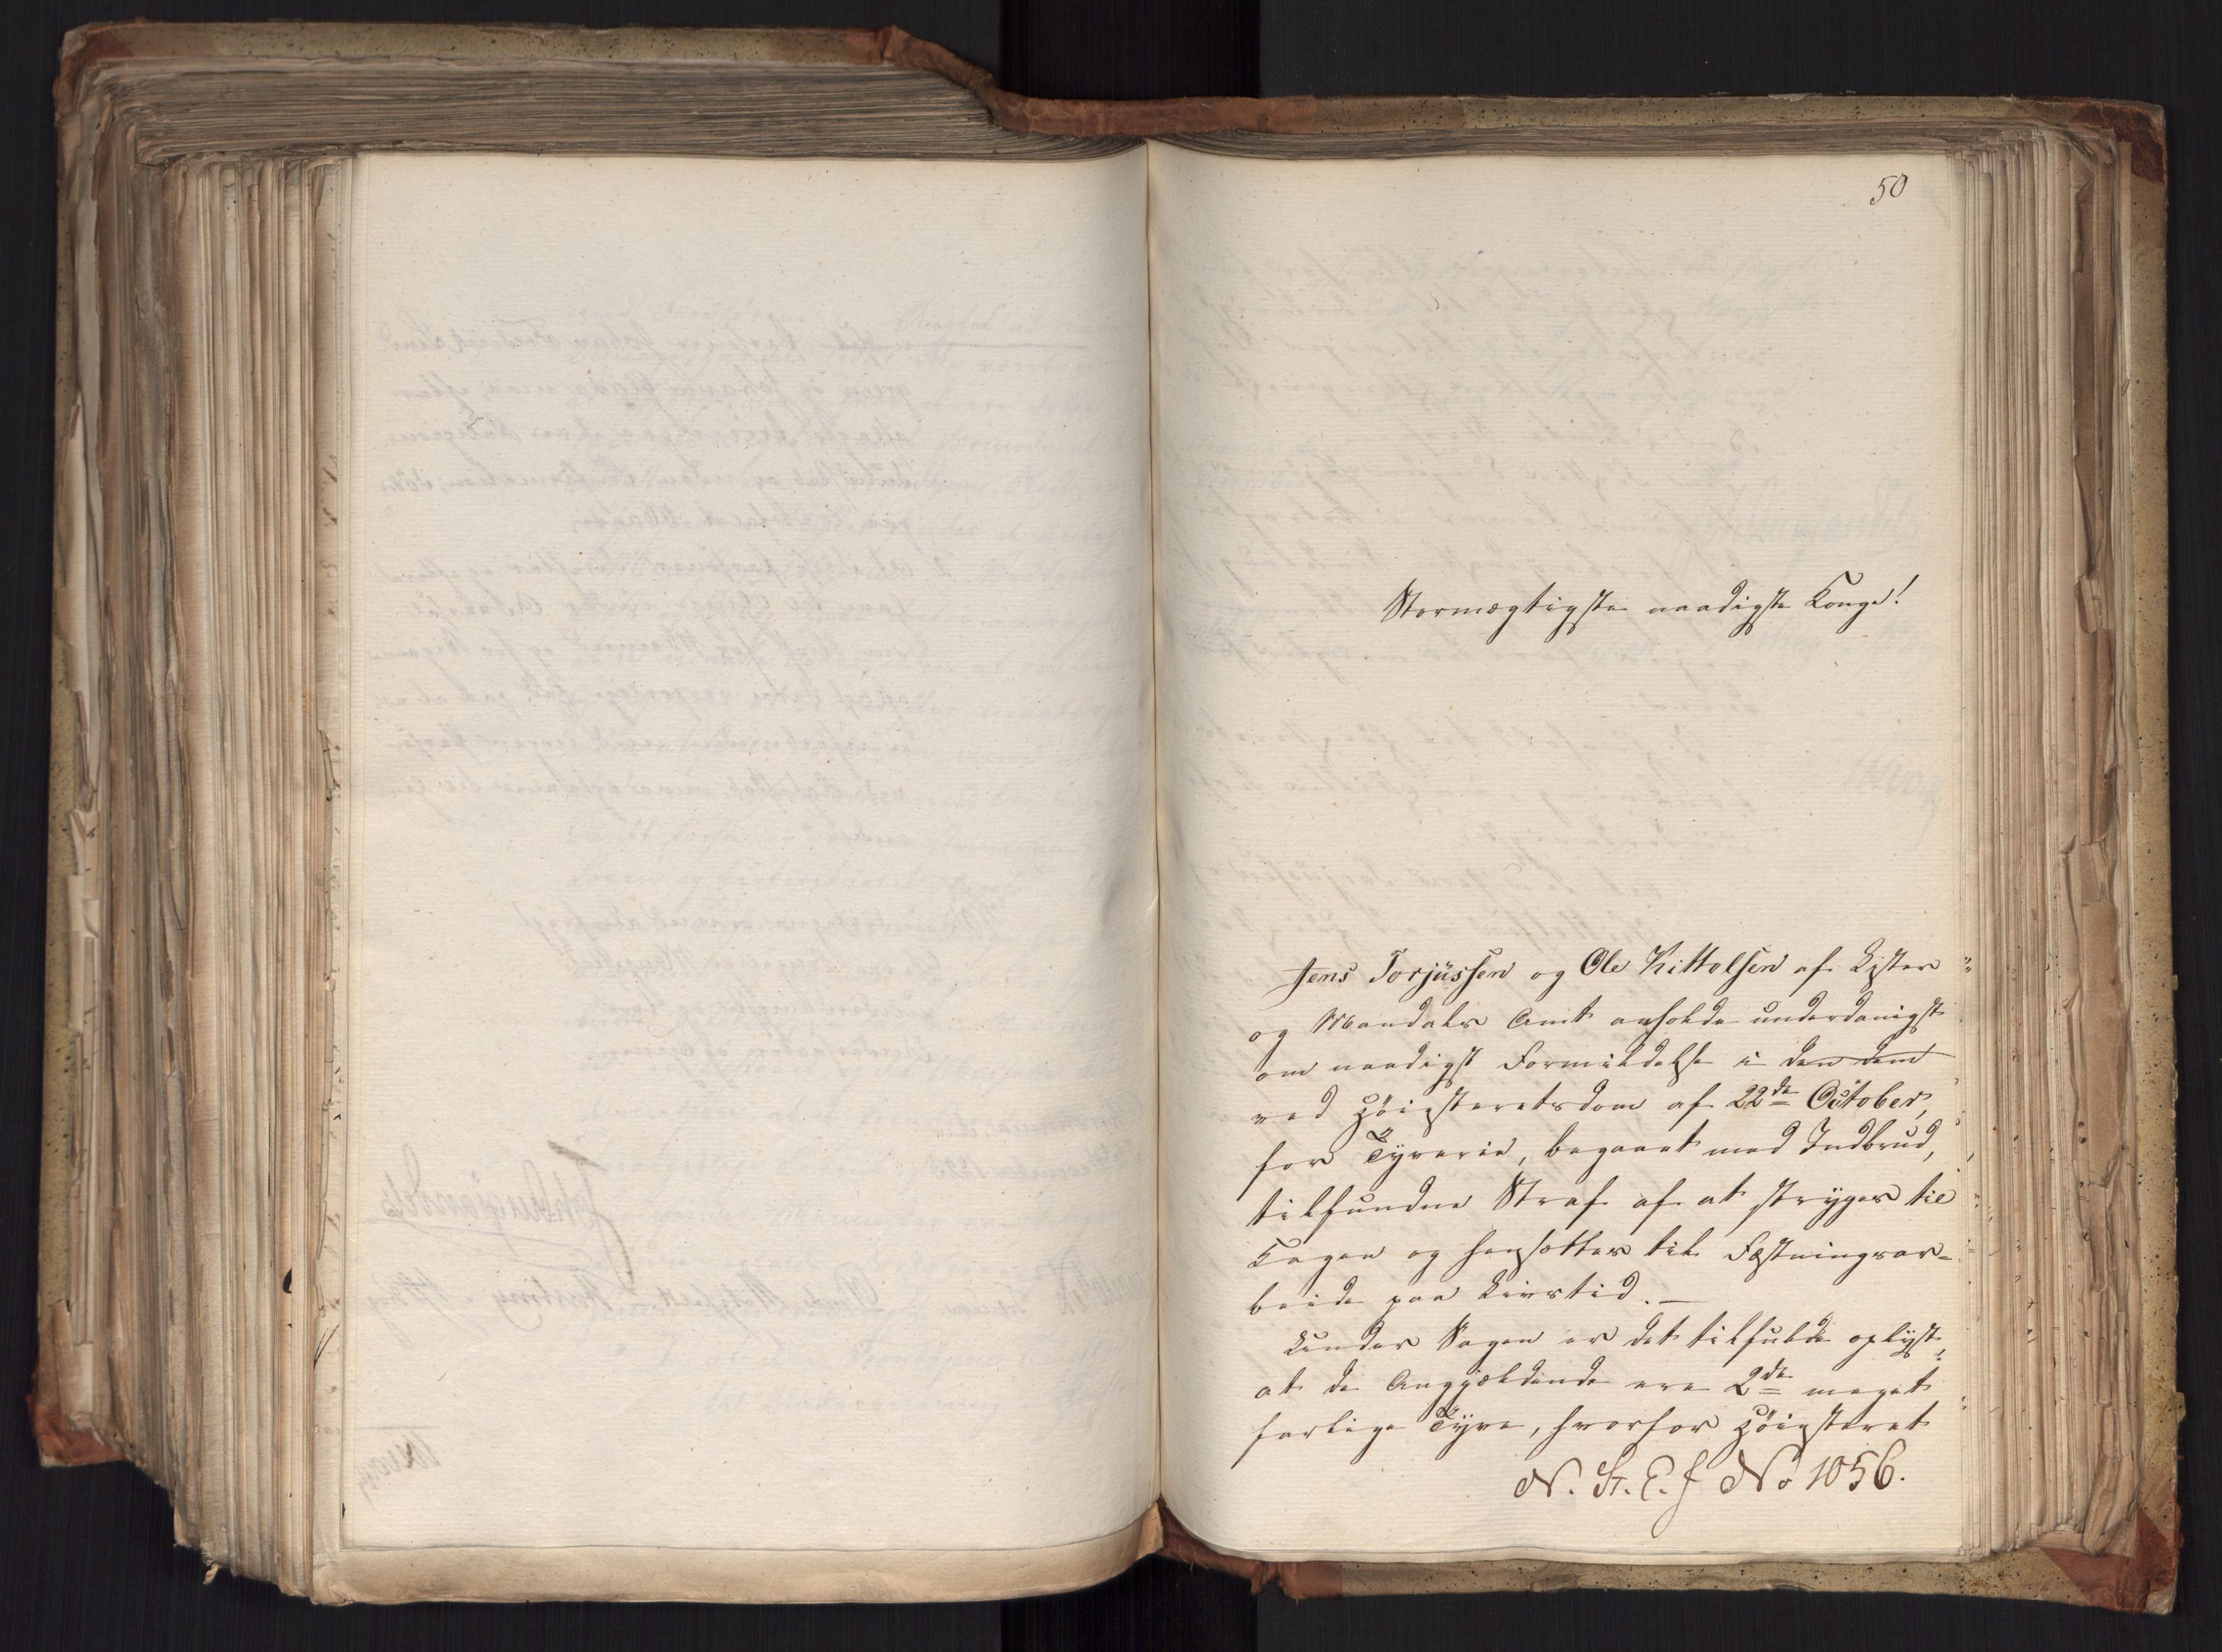 50
Stormægtigste naadigste Konge!
Jens Torjüssen og Ole Kittelsen af Lister
og Mandals Amt ansøkde underdanigst
om naadigst Formildelse i den dem
ved Höiesteretsdom af 22de October,
for Tÿverie, begaaet med Indbrud,
tilfundne Straf af at stryges til
Kagen og hensættes til Fæstningsar-
beide paa Livstid.
Under Sagen er det tilfulde oplÿst,
at de Angjældende ere 2de meget
farlige Tÿve, hvorfor Höiesteret
N. St. E. J No 1056.